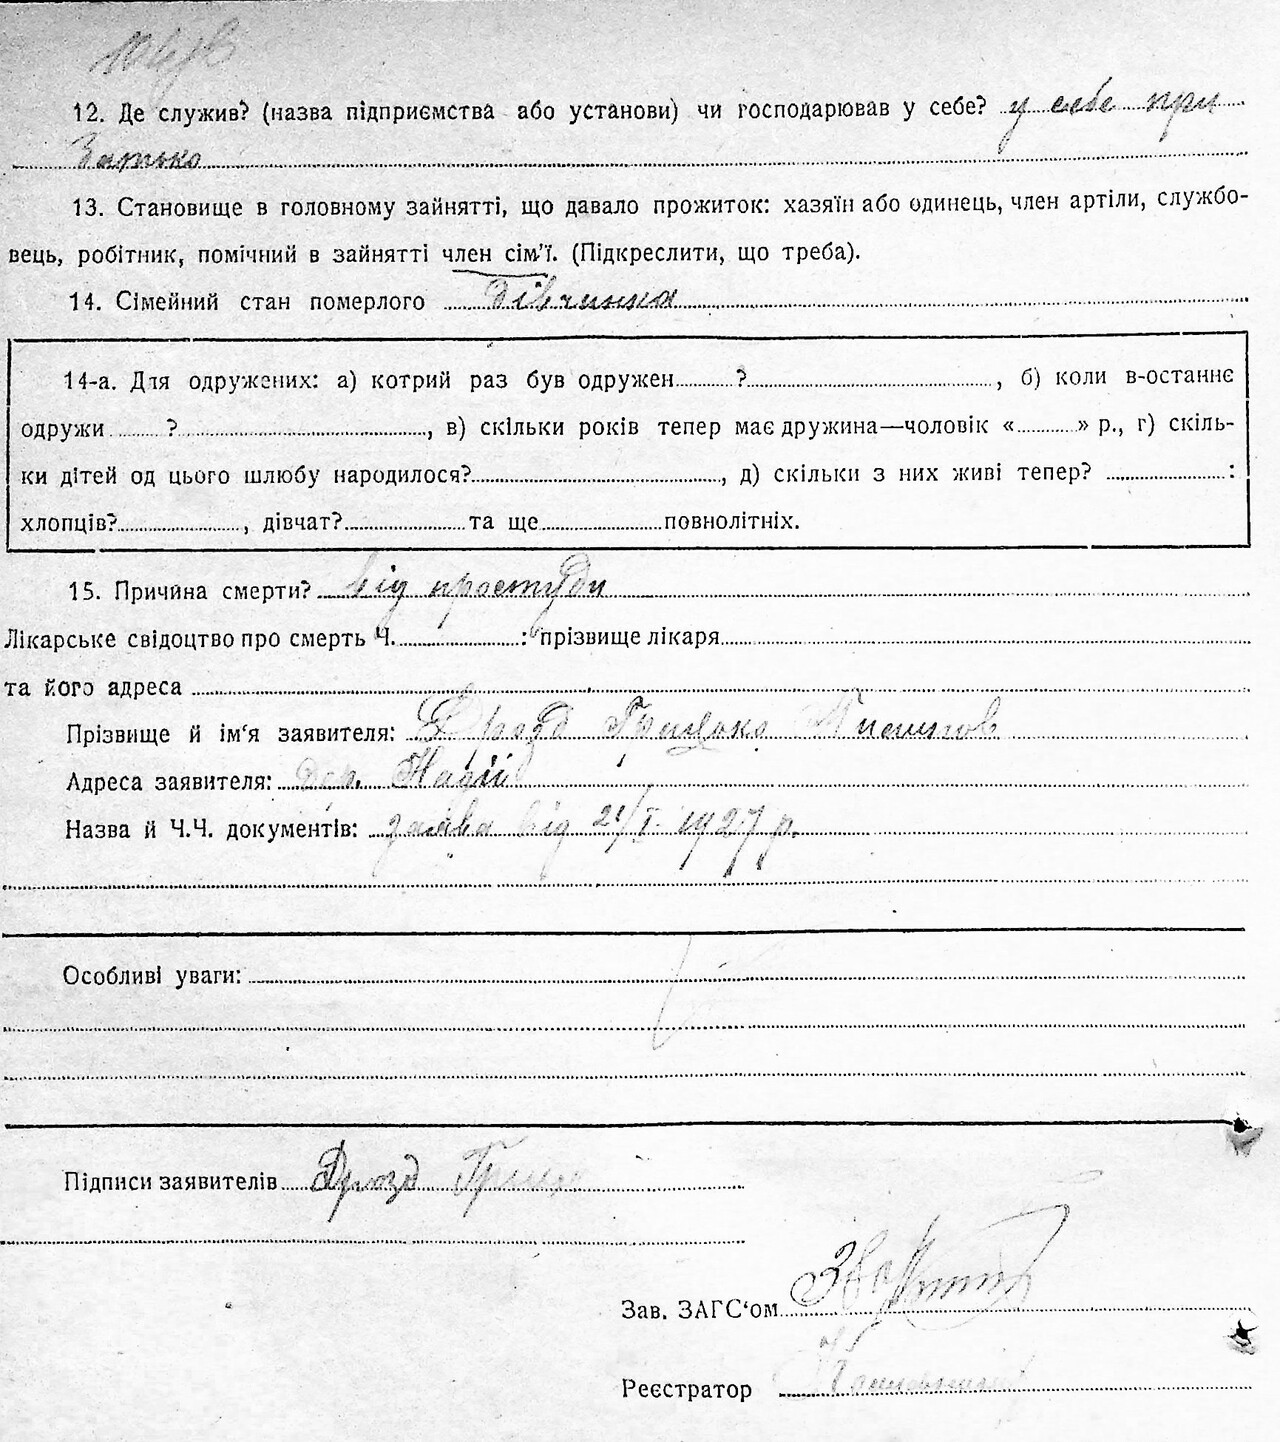 12. Де служив? (назва підприємства або установи) чи господарював у себе? у себе при
Батько
13. Становище в головному зайнятті, що давало прожиток: хазяїн або одинець, член артіли, службо-
вець, робітник, помічний в зайнятті член сім'ї. (Підкреслити, що треба).
14. Сімейний стан померлого дівчинка
14-а. Для одружених: а) котрий раз був одружен ?, б) коли в-останнє
одружи ?, в) скільки років тепер має дружина—чоловік « » р., г) скіль-
ки дітей од цього шлюбу народилося?, д) скільки з них живі тепер? :
хлопців?, дівчат? та ще повнолітніх.
15. Причина смерти? від простуди
Лікарське свідоцтво про смерть Ч. : прізвище лікаря
та його адреса
Прізвище й ім'я заявителя: Дрозд Грицько
Адреса заявителя: дер. Надії
Назва й Ч.Ч. документів: заява від 21/I 1927 р.
Особливі уваги:
Підписи заявителів Дрозд Гриц
Зав. ЗАГС'ом
Реєстратор